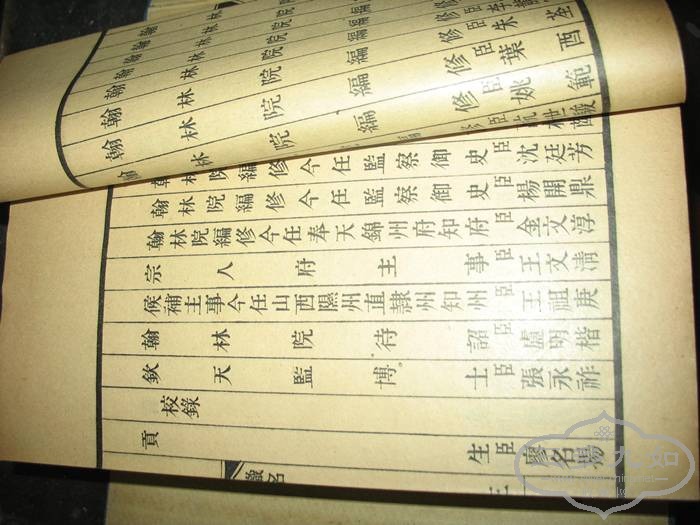 翰林院編修臣朱荃
翰林院編修臣葉酉
翰林院編修臣姚範
翰林院編修今任監察御史臣沈廷芳
翰林院編修今任監察御史臣楊開鼎
翰林院編修今任奉天錦州府知府臣金文淳
宗人府主事臣王文清
候補主事今任山西隰州直隸州知州臣王祖庚
翰林院待詔臣盧明楷
欽天監博士臣張永祚
校錄
貢生臣廖名揚
職名
三
九如